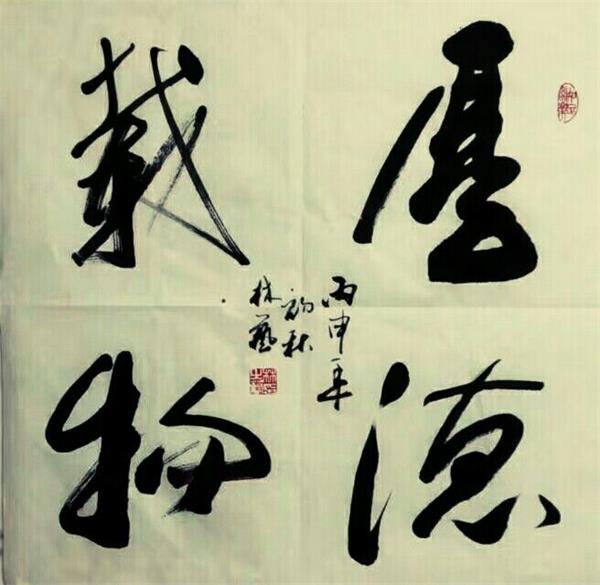 厚德
載物
丙申年
初秋
林藝